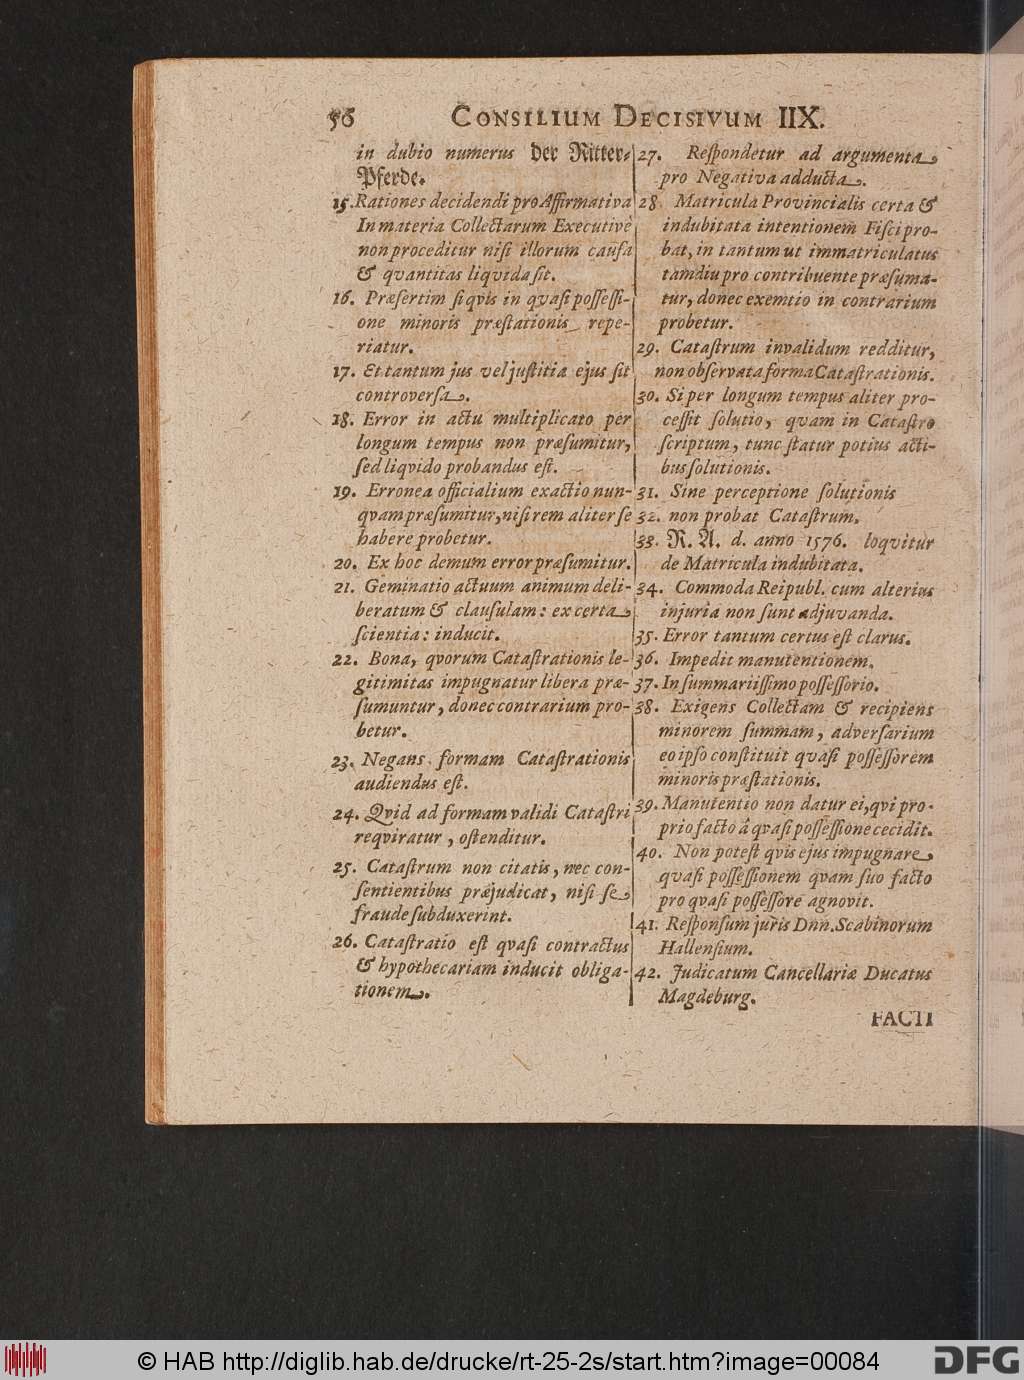 56 CONSILIUM DECISIVUM IIX.
in dubio numerus der Ritter-
Pferde.
15. Rationes decidendi pro Affirmativa
In materia Collectarum Executivè
non proceditur nisi illorum causa
& qvantitas liqvida sit.
16. Præsertim si qvis in qvasi possessi-
one minoris præstationis repe-
riatur.
17. Et tantum jus vel justitia ejus sit
controversa.
18. Error in actu multiplicato per
longum tempus non præsumitur,
sed liqvido probandus est.
19. Erronea officialium exactio nun-
qvam præsumitur, nisi rem aliter se
habere probetur.
20. Ex hoc demum error præsumitur.
21. Geminatio actuum animum deli-
beratum & clausulam: ex certa
scientia: inducit.
22. Bona, qvorum Catastrationis le-
gitimitas impugnatur libera præ-
sumuntur, donec contrarium pro-
betur.
23. Negans formam Catastrationis
audiendus est.
24. Qvid ad formam validi Catastri
reqviratur, ostenditur.
25. Catastrum non citatis, nec con-
sentientibus præjudicat, nisi se
fraude subduxerint.
26. Catastratio est qvasi contractus
& hypothecariam inducit obliga-
tionem.
27. Respondetur ad argumenta
pro Negativa adducta.
28 Matricula Provincialis certa &
indubitata intentionem Fisci pro-
bat, in tantum ut immatriculatus
tamdiu pro contribuente præsuma-
tur, donec exemtio in contrarium
probetur.
29. Catastrum invalidum redditur,
non observata forma Catastrationis.
30. Si per longum tempus aliter pro-
cessit solutio, qvam in Catastro
scriptum, tunc statur potius acti-
bus solutionis.
31. Sine perceptione solutionis
32. non probat Catastrum.
33. R. A. d. anno 1576. loqvitur
de Matricula indubitata.
34. Commoda Reipubl. cum alterius
injuria non sunt adjuvanda.
35. Error tantum certus est clarus.
36. Impedit manutentionem.
37. In summariissimo possessorio.
38. Exigens Collectam & recipiens
minorem summam, adversarium
eo ipso constituit qvasi possessorem
minoris præstationis.
39. Manutentio non datur ei, qvi pro-
prio facto â qvasi possessione cecidit.
40. Non potest qvis ejus impugnare
qvasi possessionem qvam suo facto
pro qvasi possessore agnovit.
41. Responsum juris Dnn. Scabinorum
Hallensium.
42. Judicatum Cancellariæ Ducatus
Magdeburg.
FACTI
© HAB http://diglib.hab.de/drucke/rt-25-2s/start.htm?image=00084
DFG